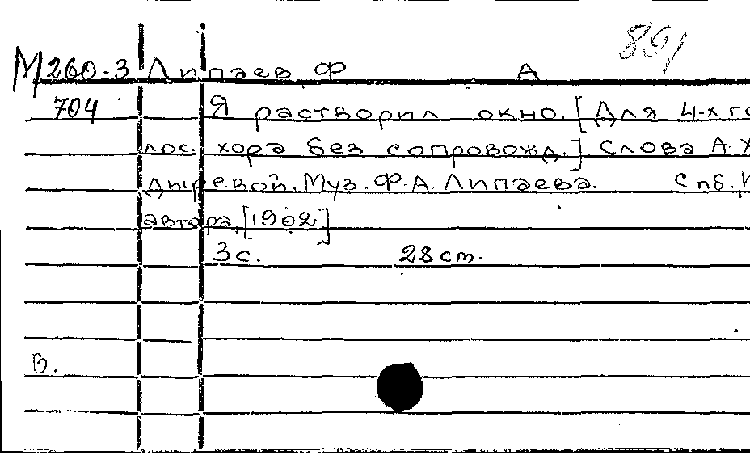 891
М260-3 Липаев, Ф А
704 Я растворил окно. [Для 4-х го
лос. хора без сопровожд.] Слова А. Х
Муз. Ф.А. Липаева. Спб. И
автора, [1902]
3 с. 28 ст.
В.